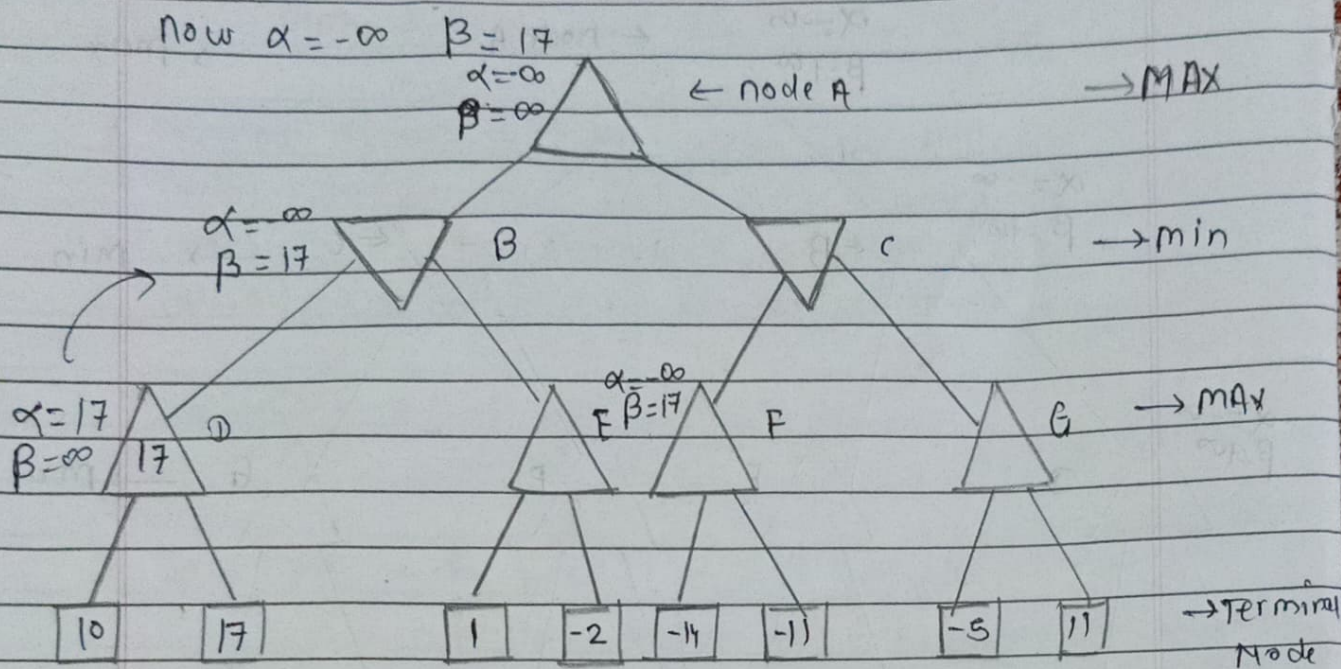 Now α = -∞ β = 17
α = -∞
β = ∞
← node A
→ MAX
α = -∞
β = 17
B
C
→ min
α = 17
β = ∞
17
D
E
α = -∞
β = 17
F
G
→ MAX
10 17 1 -2 -14 -11 -5 11
→ Terminal
Node